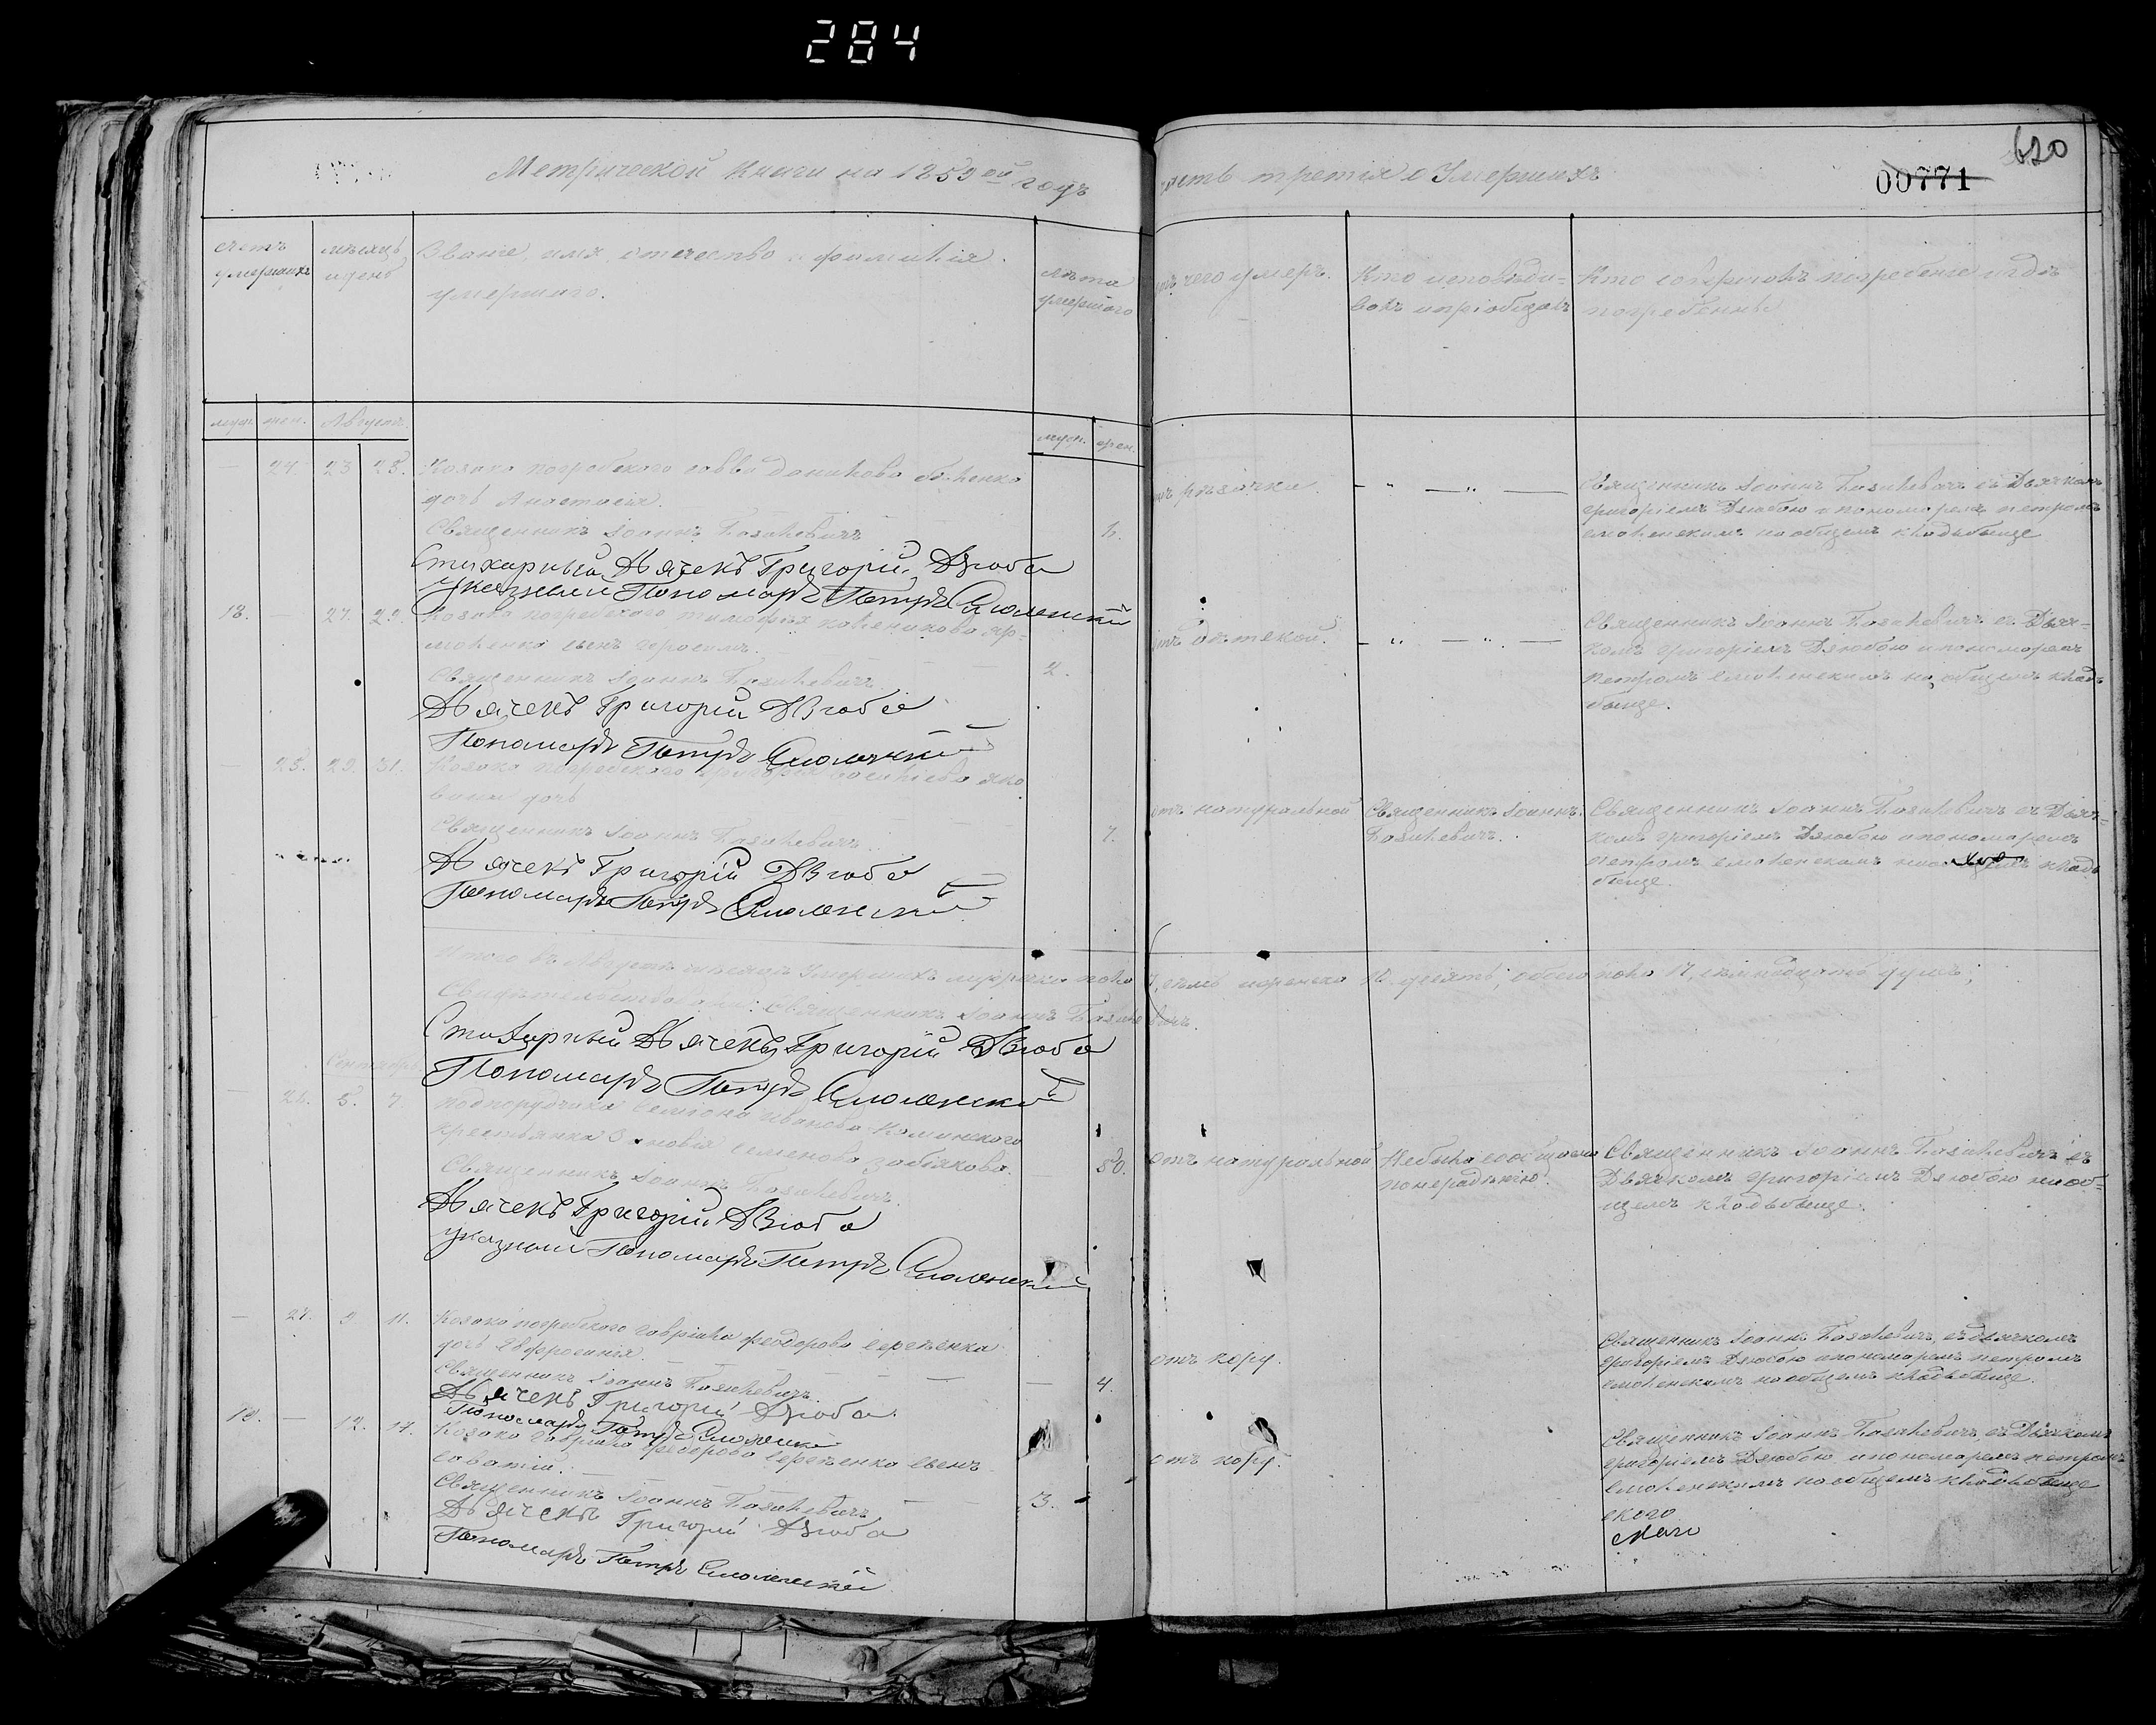 284
620
00771
Метрической Книги на 1859ой годъ
часть третія о Умершихъ
счетъ умершихъ
мѣсяцъ и день
Званіе, имя, отчество и фамилія
умершаго.
лѣта умершаго
отъ чего умеръ.
Кто исповѣды-
валъ и пріобщалъ
Кто совершалъ погребеніе и гдѣ
погребены
муж. жен. Августъ.
муж. жен.
— 24 23 25. Козака погребского Саввы Данилова
дочь Анастасія.
Священникъ Іоаннъ Базилевичъ
1.
Стихарный Дьячекъ Григорій Дзюба
указный Пономарь Петръ Смоленскій
Священникъ Іоаннъ Базилевичъ съ Дьячкомъ
Григоріемъ Дзюбою и пономаремъ Петромъ
Смоленскимъ на общемъ кладьбище
18. — 27. 29. Козака погребского Тимофея
сынъ
Священникъ Іоаннъ Базилевичъ
2.
Дьячекъ Григорій Дзюба
Пономарь Петръ Смоленскій
Священникъ Іоаннъ Базилевичъ съ Дьяч-
комъ Григоріемъ Дзюбою и пономаремъ
Петромъ Смоленскимъ на общемъ кладь
бище.
— 25. 29. 31. Козака погребского Григорія
дочь
Священникъ Іоаннъ Базилевичъ.
Дьячекъ Григорій Дзюба
Пономарь Петръ Смоленскій
отъ натуральной
Священникъ Іоаннъ
Базилевичъ.
Священникъ Іоаннъ Базилевичъ съ Дьяч-
комъ Григоріемъ Дзюбою и пономаремъ
Петромъ Смоленскимъ на общемъ кладь
бище.
Итого въ Августѣ мѣсяцѣ Умершихъ мужеска пола 7, семь женска 10 десять; обоего пола 17, семнадцать душъ;
Свидѣтельствовали: Священникъ Іоаннъ Базилевичъ.
Стихарный Дьячекъ Григорій Дзюба
Пономарь Петръ Смоленскій
Сентябрь
— 26. 5. 7. подпоручика Семіона Иванова
крестьянка Семенова
Священникъ Іоаннъ Базилевичъ.
50.
Дьячекъ Григорій Дзюба
указный Пономарь Петръ Смоленскій
отъ натуральной
по нерадѣнію.
Священникъ Іоаннъ Базилевичъ съ
Дьячкомъ Григоріемъ Дзюбою на об-
щемъ кладьбище.
— 27. 9 11. Козака погребского Гавріила Феодорова Сергѣенка
дочь Евфросинія.
Священникъ Іоаннъ Базилевичъ.
4.
Дьячекъ Григорій Дзюба.
Пономарь Петръ Смоленскій
отъ кору.
Священникъ Іоаннъ Базилевичъ, съ дьячкомъ
Григоріемъ Дзюбою и пономаремъ Петромъ
Смоленскимъ на общемъ кладьбище.
19. — 12. 14. Козака Гавріила Феодорова Сергѣенка сынъ
Савватій.
Священникъ Іоаннъ Базилевичъ.
3.
Дьячекъ Григорій Дзюба
Пономарь Петръ Смоленскій
отъ кору.
Священникъ Іоаннъ Базилевичъ, съ Дьячкомъ
Григоріемъ Дзюбою и пономаремъ Петромъ
Смоленскимъ на общемъ кладьбище